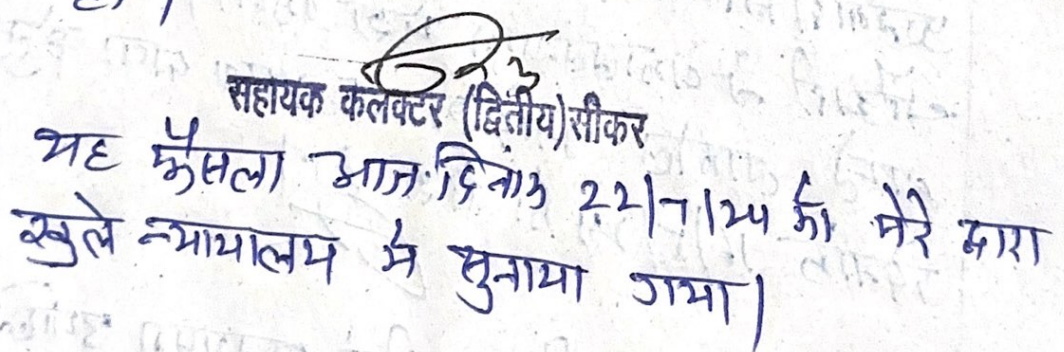 सहायक कलक्टर (द्वितीय) सीकर
यह फैसला आज दिनांक 22/7/24 को मेरे द्वारा
खुले न्यायालय में सुनाया गया।